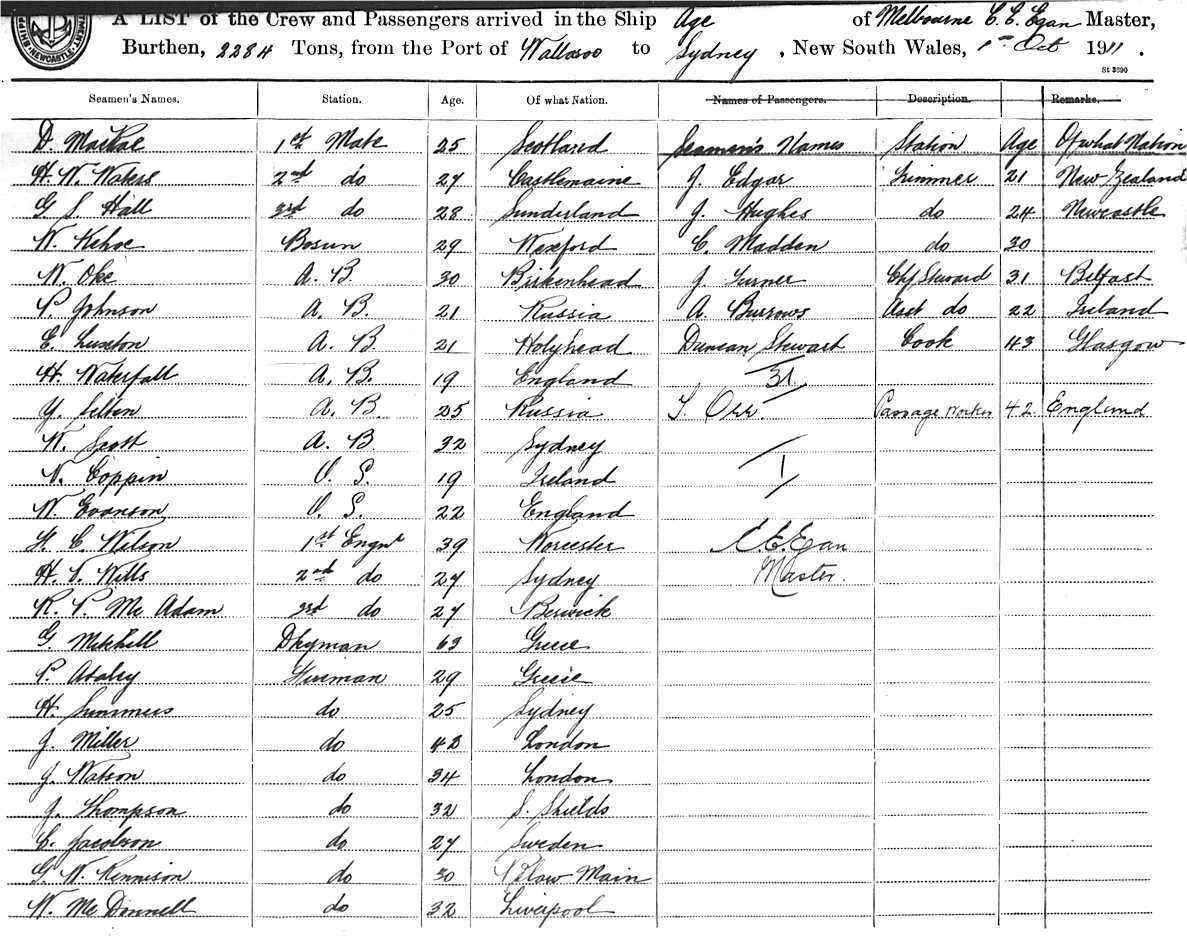 A LIST of the Crew and Passengers arrived in the Ship Age of Melbourne C. E. Egan Master,
Burthen, 2284 Tons, from the Port of Wallaroo to Sydney, New South Wales, 1st Oct 1911.
St 3890
Seamen's Names. Station. Age. Of what Nation. Names of Passengers. Description. Remarks.
D. MacRae 1st Mate 25 Scotland Seamen's Names Station Age Of what Nation
H. W. Waters 2nd do 27 Castlemaine J. Edgar Trimmer 21 New Zealand
G. S. Hall 3rd do 28 Sunderland J. Hughes do 24 Newcastle
W. Kehoe Bosun 29 Wexford C. Madden do 30
W. Oke A. B. 30 Birkenhead J. Turner Chf Steward 31 Belfast
P. Johnson A. B. 21 Russia A. Burrows Asst do 22 Ireland
C. Luxton A. B. 21 Holyhead Duncan Stewart Cook 43 Glasgow
H. Waterfall A. B. 19 England 31
Y. A. B. 25 Russia S. Orr Passage Worker 42 England
W. Scott A. B. 32 Sydney
N. Coppin O. S. 19 Ireland 1
W. Evanson O. S. 22 England
C. Wilson 1st Engnr 39 Worcester C. E. Egan
H. V. Wills 2nd do 27 Sydney Master.
R. P. Mc Adam 3rd do 27 Berwick
G. Mitchell Dkyman 63 Greece
P. Fireman 29 Greece
H. Summers do 25 Sydney
J. Miller do 42 London
J. Watson do 34 London
J. Thompson do 32 S. Shields
C. Jacobson do 27 Sweden
G. W. Kennison do 30 Pelaw Main
W. Mc Donnell do 32 Liverpool